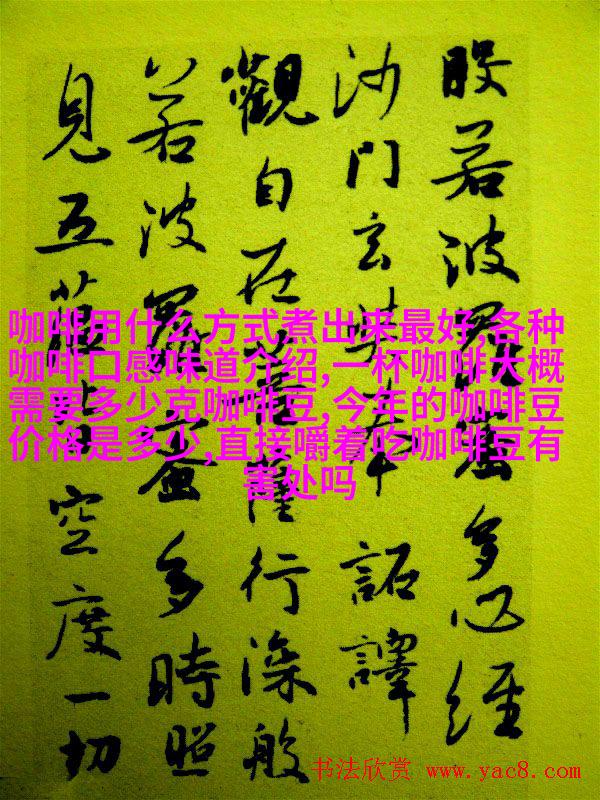 般若波羅蜜多心經
沙門玄奘奉 詔譯
觀自在菩薩行深般
若波羅蜜多時照
見五蘊皆空度一切
咖啡用什么方式煮出来最好,各种
咖啡口感味道介绍,一杯咖啡大概
需要多少克咖啡豆,今年的咖啡豆
价格是多少,直接嚼着吃咖啡豆有
害处吗
书法欣赏 www.yac8.com